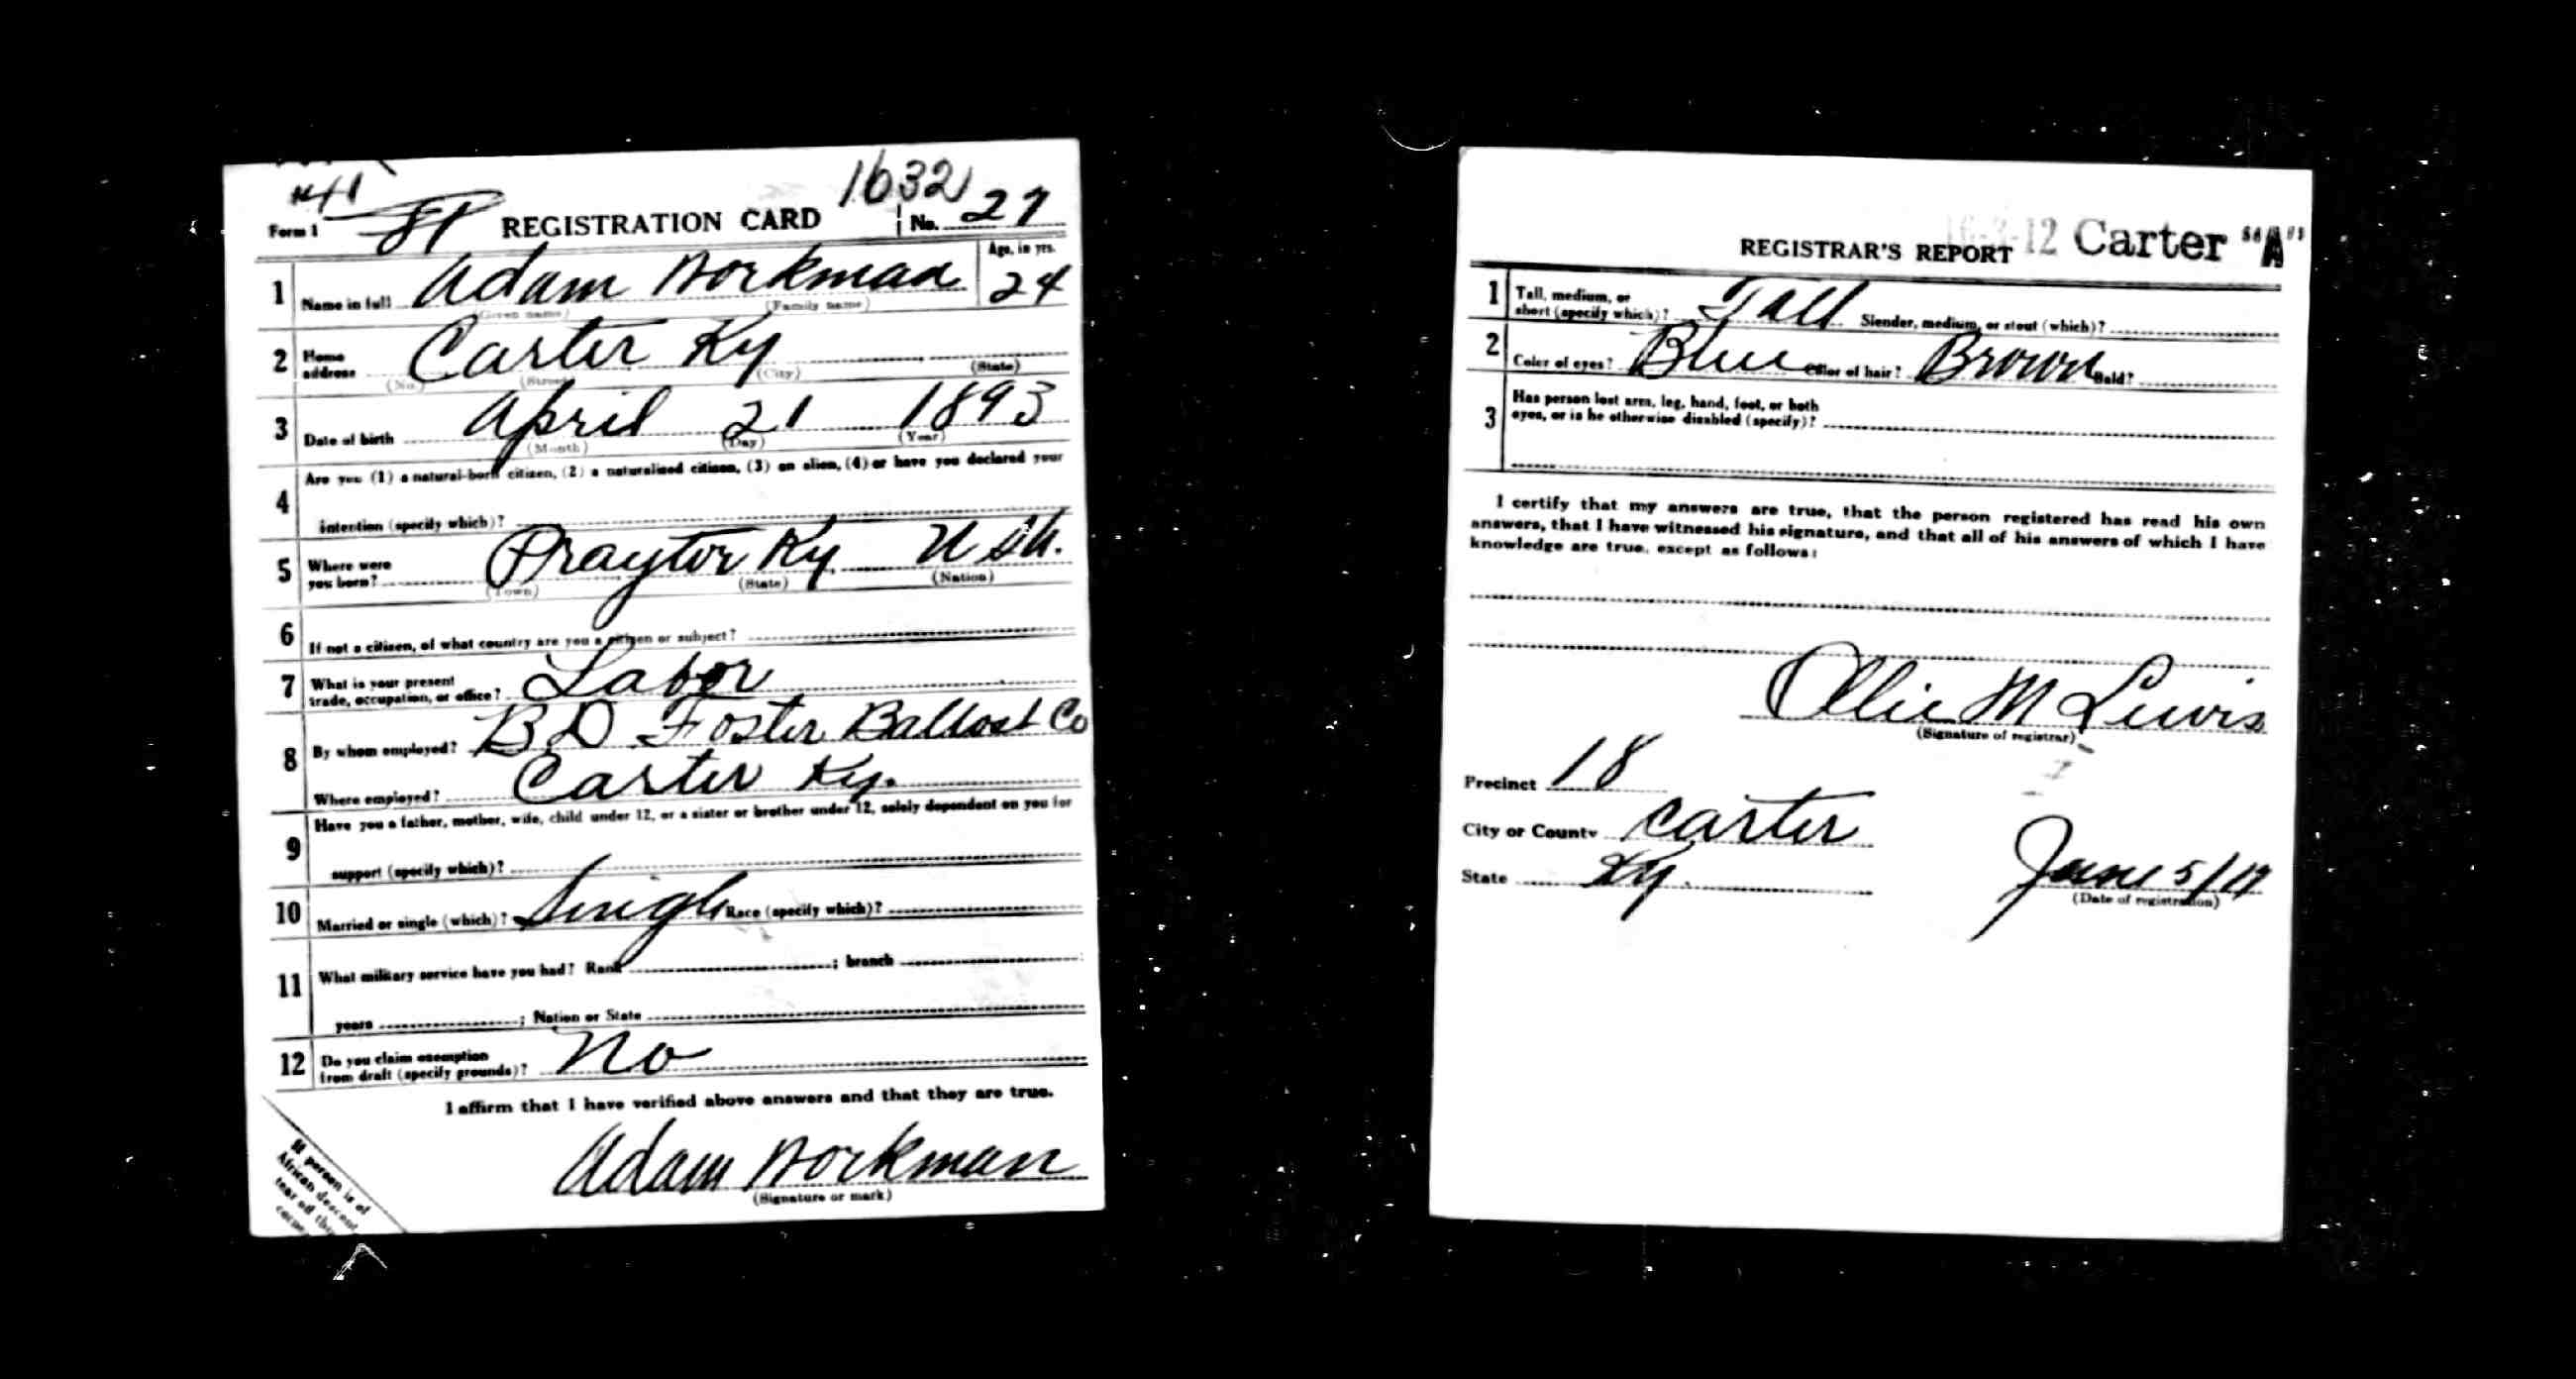 41
1632
Form 1 REGISTRATION CARD No. 27
1 Name in full Adam Workman Age, in yrs. 24
(Given name) (Family name)
2 Home address Carter Ky
(No.) (Street) (City) (State)
3 Date of birth April 21 1893
(Month) (Day) (Year)
Are you (1) a natural-born citizen, (2) a naturalized citizen, (3) an alien, (4) or have you declared your
4 intention (specify which)?
5 Where were you born? Prayter Ky. U S A.
(Town) (State) (Nation)
6 If not a citizen, of what country are you a citizen or subject?
7 What is your present trade, occupation, or office? Labor
8 By whom employed? B D Foster Ballast Co
Where employed? Carter Ky.
Have you a father, mother, wife, child under 12, or a sister or brother under 12, solely dependent on you for
9 support (specify which)?
10 Married or single (which)? Single Race (specify which)?
11 What military service have you had? Rank ; branch
years ; Nation or State
12 Do you claim exemption from draft (specify grounds)? No
I affirm that I have verified above answers and that they are true.
Adam Workman
(Signature or mark)
If person is of
African descent,
tear off this
corner
REGISTRAR'S REPORT 16-3-12 Carter "A"
1 Tall, medium, or short (specify which)? Tall Slender, medium, or stout (which)?
2 Color of eyes? Blue Color of hair? Brown Bald?
3 Has person lost arm, leg, hand, foot, or both
eyes, or is he otherwise disabled (specify)?
I certify that my answers are true, that the person registered has read his own
answers, that I have witnessed his signature, and that all of his answers of which I have
knowledge are true, except as follows:
Ollie M Lewis
(Signature of registrar)
Precinct 18
City or County Carter
State Ky.
June 5/17
(Date of registration)